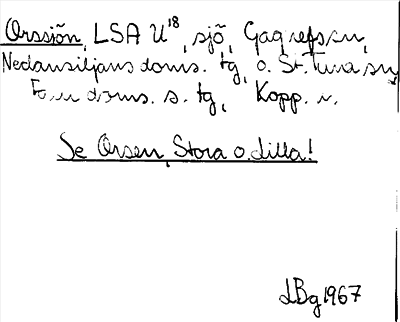 Orssjön, LSA U¹⁸, sjö, Gagnefs sn,
Nedansiljans doms. tg, o. St. Tuna sn,
Falu doms. s. tg, Kopp. l.
Se Orsen, Stora o. Lilla!
LBg 1967